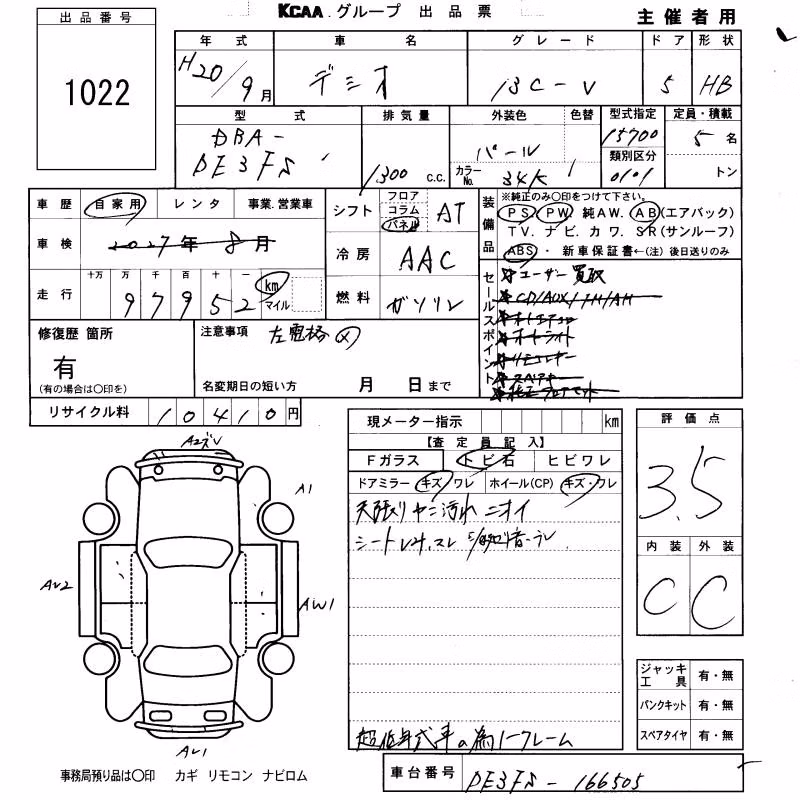 KCAA グループ 出品票
主催者用
出品番号
1022
年式 車名 グレード ドア 形状
H20/9月 デミオ 13C-V 5 HB
型式 排気量 外装色 色替 型式指定 定員・積載
DBA-DE3FS 1300 c.c. パール カラーNo. 34K 15700 5名
類別区分 0101 トン
車歴 自家用 レンタ 事業.営業車
車検 2027年8月
走行 十万 万 千 百 十 一
97952 km マイル
シフト フロア コラム パネル AT
冷房 AAC
燃料 ガソリン
装備品
※純正のみ○印をつけて下さい。
PS PW 純AW. AB(エアバック)
TV. ナビ. カワ. SR(サンルーフ)
ABS・新車保証書←(注)後日送りのみ
セールスポイント
ユーザー買取
CD/AUX/FM/AM
オートエアコン
オートライト
リモコンキー
スペアキー
純正フロアマット
修復歴 箇所
有
(有の場合は○印を)
注意事項
名変期日の短い方 月 日まで
リサイクル料 10410円
現メーター指示 km
【査定員記入】
Fガラス トビ石 ヒビワレ
ドアミラー キズ・ワレ ホイール(CP) キズ・ワレ
天張りヤニ汚れ ニオイ
シート
超低年式車の為ノークレーム
評価点
3.5
内装 外装
C C
ジャッキ工具 有・無
パンクキット 有・無
スペアタイヤ 有・無
A2ズV
A1
AV2
AW1
AV1
事務局預り品は○印 カギ リモコン ナビロム
車台番号 DE3FS-166505